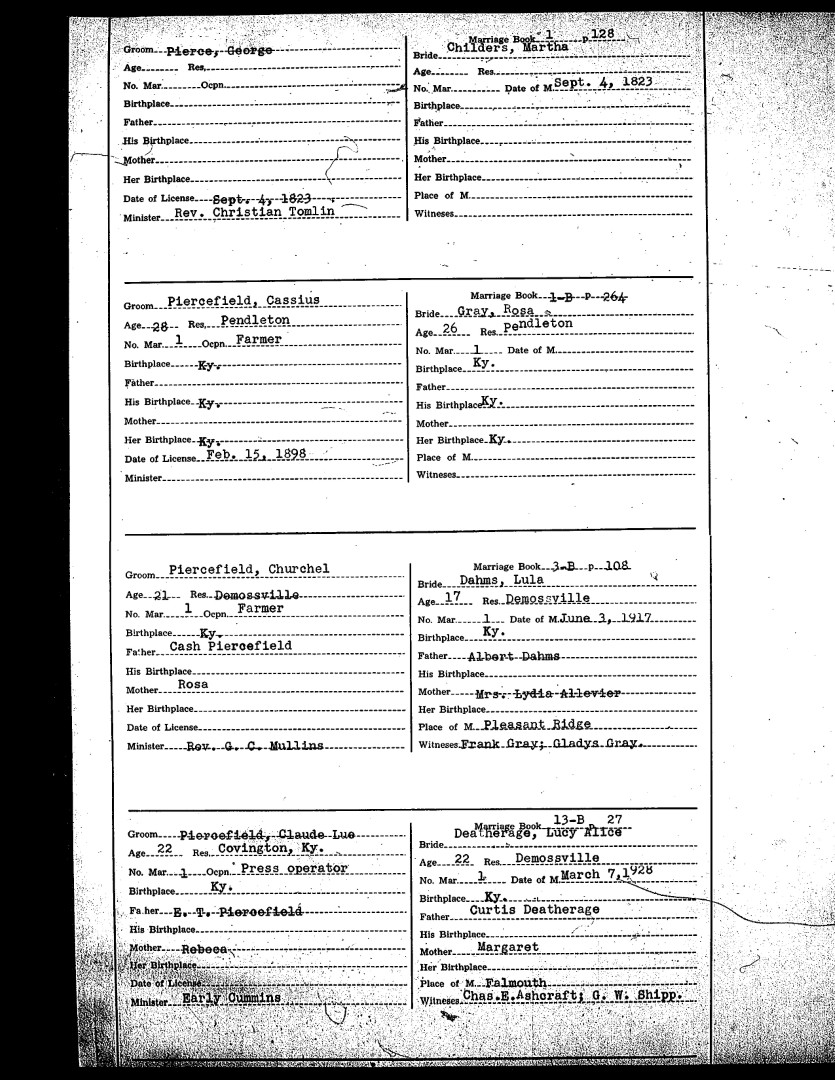 Groom Pierce, George
Age Res.
No. Mar. Ocpn.
Birthplace
Father
His Birthplace
Mother
Her Birthplace
Date of License Sept. 4, 1823
Minister Rev. Christian Tomlin
Marriage Book 1 p 128
Bride Childers, Martha
Age Res.
No. Mar. Date of M. Sept. 4, 1823
Birthplace
Father
His Birthplace
Mother
Her Birthplace
Place of M.
Witnesses
Groom Piercefield, Cassius
Age 28 Res. Pendleton
No. Mar. 1 Ocpn. Farmer
Birthplace Ky.
Father
His Birthplace Ky.
Mother
Her Birthplace Ky.
Date of License Feb. 15, 1898
Minister
Marriage Book 1-B P 264
Bride Gray, Rosa
Age 26 Res. Pendleton
No. Mar. 1 Date of M.
Birthplace Ky.
Father
His Birthplace Ky.
Mother
Her Birthplace Ky.
Place of M.
Witnesses
Groom Piercefield, Churchel
Age 21 Res. Demossville
No. Mar. 1 Ocpn. Farmer
Birthplace Ky.
Father Cash Piercefield
His Birthplace
Mother Rosa
Her Birthplace
Date of License
Minister Rev. G. C. Mullins
Marriage Book 3-B p 108
Bride Dahms, Lula
Age 17 Res. Demossville
No. Mar. 1 Date of M. June 3, 1917
Birthplace Ky.
Father Albert Dahms
His Birthplace
Mother Mrs. Lydia Allevier
Her Birthplace
Place of M. Pleasant Ridge
Witnesses Frank Gray; Gladys Gray.
Groom Piercefield, Claude Lue
Age 22 Res. Covington, Ky.
No. Mar. 1 Ocpn. Press operator
Birthplace Ky.
Father E. T. Piercefield
His Birthplace
Mother Rebeca
Her Birthplace
Date of License
Minister Early Cummins
Marriage Book 13-B p 27
Bride Deatherage, Lucy Alice
Age 22 Res. Demossville
No. Mar. 1 Date of M. March 7, 1928
Birthplace Ky.
Father Curtis Deatherage
His Birthplace
Mother Margaret
Her Birthplace
Place of M. Falmouth
Witnesses Chas.E.Ashcraft; G. W. Shipp.